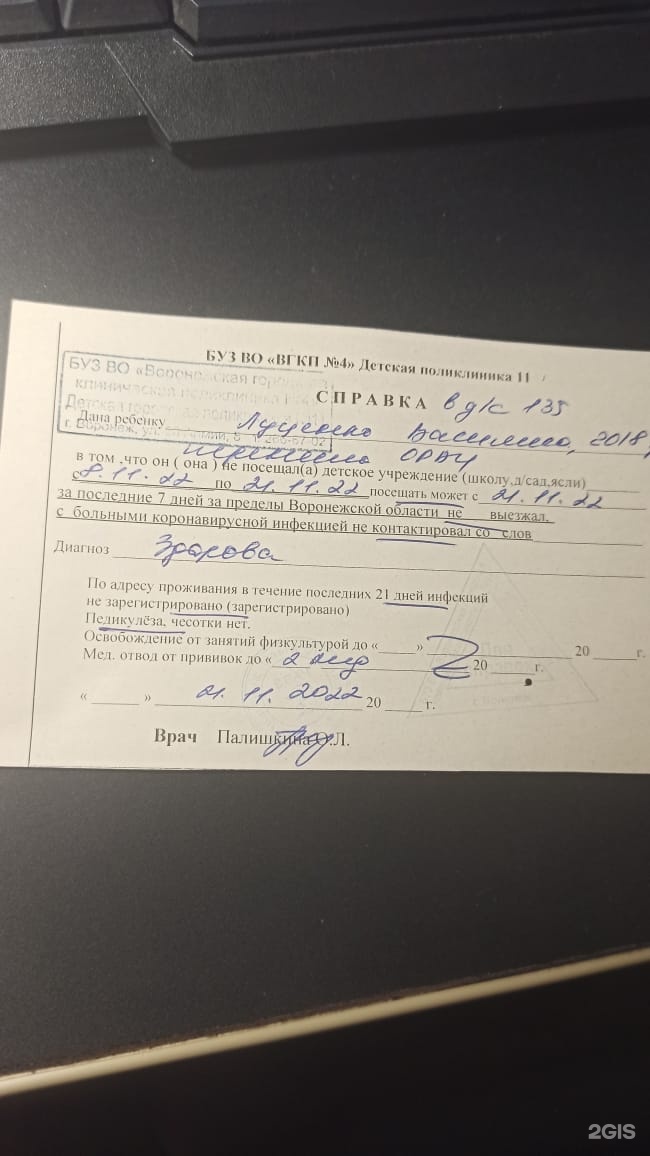 БУЗ ВО «ВГКП №4» Детская поликлиника 11
БУЗ ВО «Воронежская городская
клиническая поликлиника
СПРАВКА в д/с 135
Детская городская поликлиника 11
г. Воронеж, ул.
Дана ребенку Луценко Василина, 2018,
перенесла ОРВИ
в том ,что он ( она ) не посещал(а) детское учреждение (школу,д/сад,ясли)
с 8.11.22 по 21.11.22 посещать может с 21.11.22
за последние 7 дней за пределы Воронежской области не выезжал,
с больными коронавирусной инфекцией не контактировал со слов
Диагноз Здорова
По адресу проживания в течение последних 21 дней инфекций
не зарегистрировано (зарегистрировано)
Педикулёза, чесотки нет.
Освобождение от занятий физкультурой до « » 20 г.
Мед. отвод от прививок до « 2 нед 20 г.
« » 21.11.2022 20 г.
Врач Палишкина О.Л.
2GIS